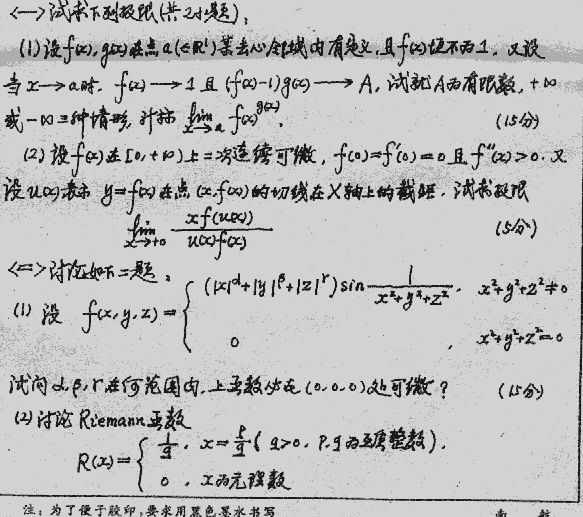 <一>试求下列极限(共2小题).
(1)设f(x), g(x)在点a(∈R¹)某去心邻域内有定义,且f(x)恒不为1,又设
当x→a时,f(x)→1且(f(x)-1)g(x)→A,试就A为有限数,+∞
或-∞三种情形,计算 lim_{x→a} f(x)^{g(x)}. (15分)
(2)设f(x)在[0,+∞)上二次连续可微,f(0)=f'(0)=0且f''(x)>0.又
设u(x)表示y=f(x)在点(x,f(x))的切线在X轴上的截距.试求极限
lim_{x→+0} \frac{xf(u(x))}{u(x)f(x)} (15分)
<二>讨论如下二题:
(1)设 f(x,y,z)= { (|x|^α+|y|^β+|z|^γ) sin \frac{1}{x²+y²+z²}, x²+y²+z²≠0
0, x²+y²+z²=0
试问α,β,γ在何范围内,上函数在(0,0,0)处可微? (15分)
(2)讨论Riemann函数
R(x)= { \frac{1}{q}, x=\frac{p}{q} (q>0, p,q为互质整数).
0, x为无理数
注:为了便于胶印,要求用黑色墨水书写
南 航